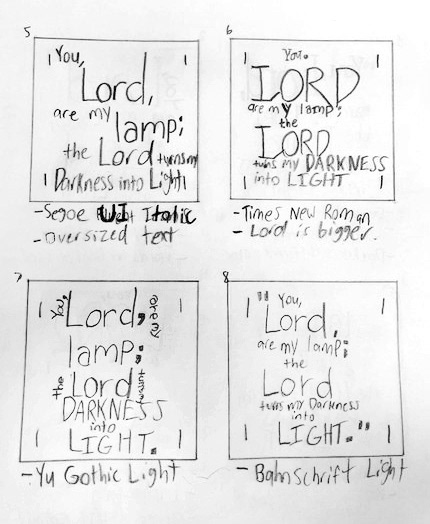 5
You,
Lord,
are my
lamp;
the Lord turns my
Darkness into Light
-Segoe UI Italic
-oversized text
6
You,
LORD
are my lamp;
the
LORD
turns my DARKNESS
into LIGHT
-Times New Roman
-Lord is bigger.
7
You, Lord, are my
lamp;
the Lord turns
DARKNESS
into
LIGHT.
-Yu Gothic Light
8
"You,
Lord,
are my lamp;
the
Lord
turns my Darkness
into
LIGHT."
-Bahnschrift Light